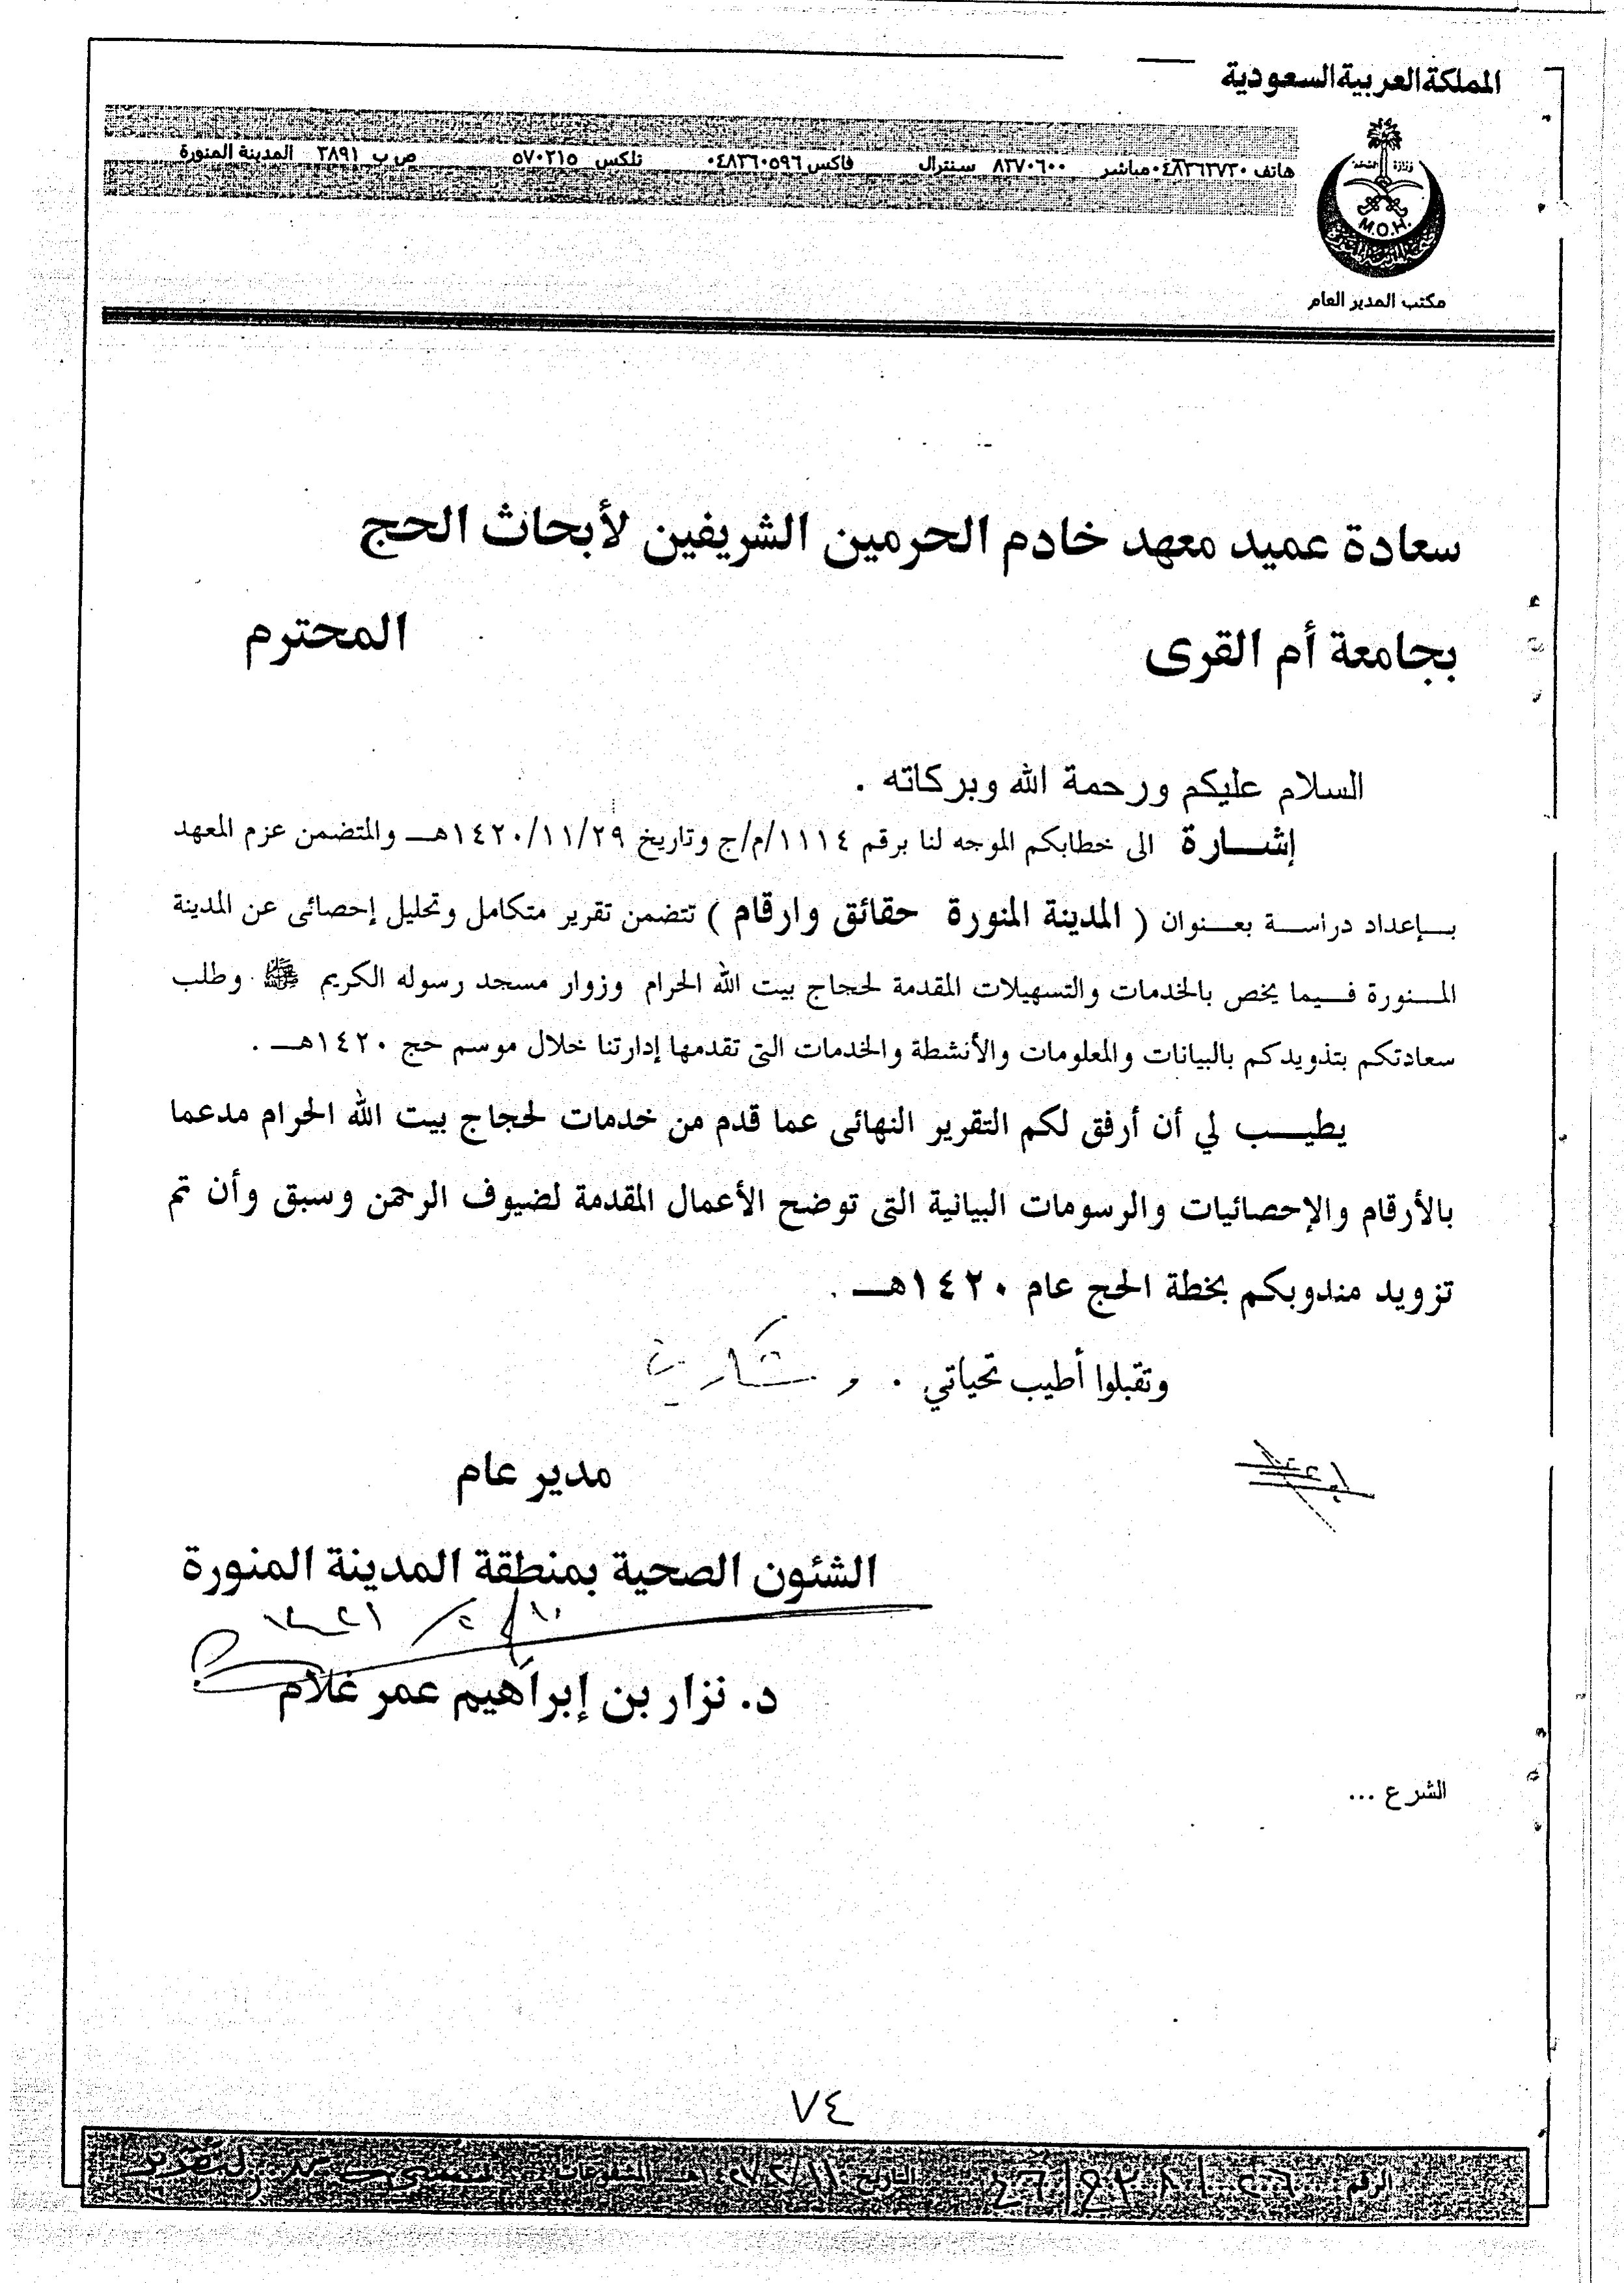 المملكة العربية السعودية
هاتف ٠٤٨٣٦٣٧٣٠ مباشر ٨٣٧٠٦٠٠ سنترال فاكس ٠٤٨٣٦٠٥٩٦ تلكس ٥٧٠٢١٥ ص ب ٣٨٩١ المدينة المنورة
وزارة الصحة
M.O.H.
مكتب المدير العام
سعادة عميد معهد خادم الحرمين الشريفين لأبحاث الحج
بجامعة أم القرى المحترم
السلام عليكم ورحمة الله وبركاته .
إشــارة الى خطابكم الموجه لنا برقم ١١١٤/م/ج وتاريخ ١٤٢٠/١١/٢٩هـ والمتضمن عزم المعهد
بـإعداد دراســة بعــنوان ( المدينة المنورة حقائق وارقام ) تتضمن تقرير متكامل وتحليل إحصائى عن المدينة
المــنورة فــيما يخص بالخدمات والتسهيلات المقدمة لحجاج بيت الله الحرام وزوار مسجد رسوله الكريم ﷺ وطلب
سعادتكم بتذويدكم بالبيانات والمعلومات والأنشطة والخدمات التى تقدمها إدارتنا خلال موسم حج ١٤٢٠هـ .
يطيــب لي أن أرفق لكم التقرير النهائى عما قدم من خدمات لحجاج بيت الله الحرام مدعما
بالأرقام والإحصائيات والرسومات البيانية التى توضح الأعمال المقدمة لضيوف الرحمن وسبق وأن تم
تزويد مندوبكم بخطة الحج عام ١٤٢٠هـ .
وتقبلوا أطيب تحياتي .
مدير عام
الشئون الصحية بمنطقة المدينة المنورة
د. نزار بن إبراهيم عمر غلام
الشرع ...
٧٤
الرقم التاريخ المشفوعات